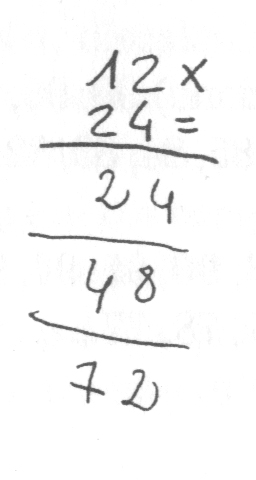 12 x
24 =
24
48
72